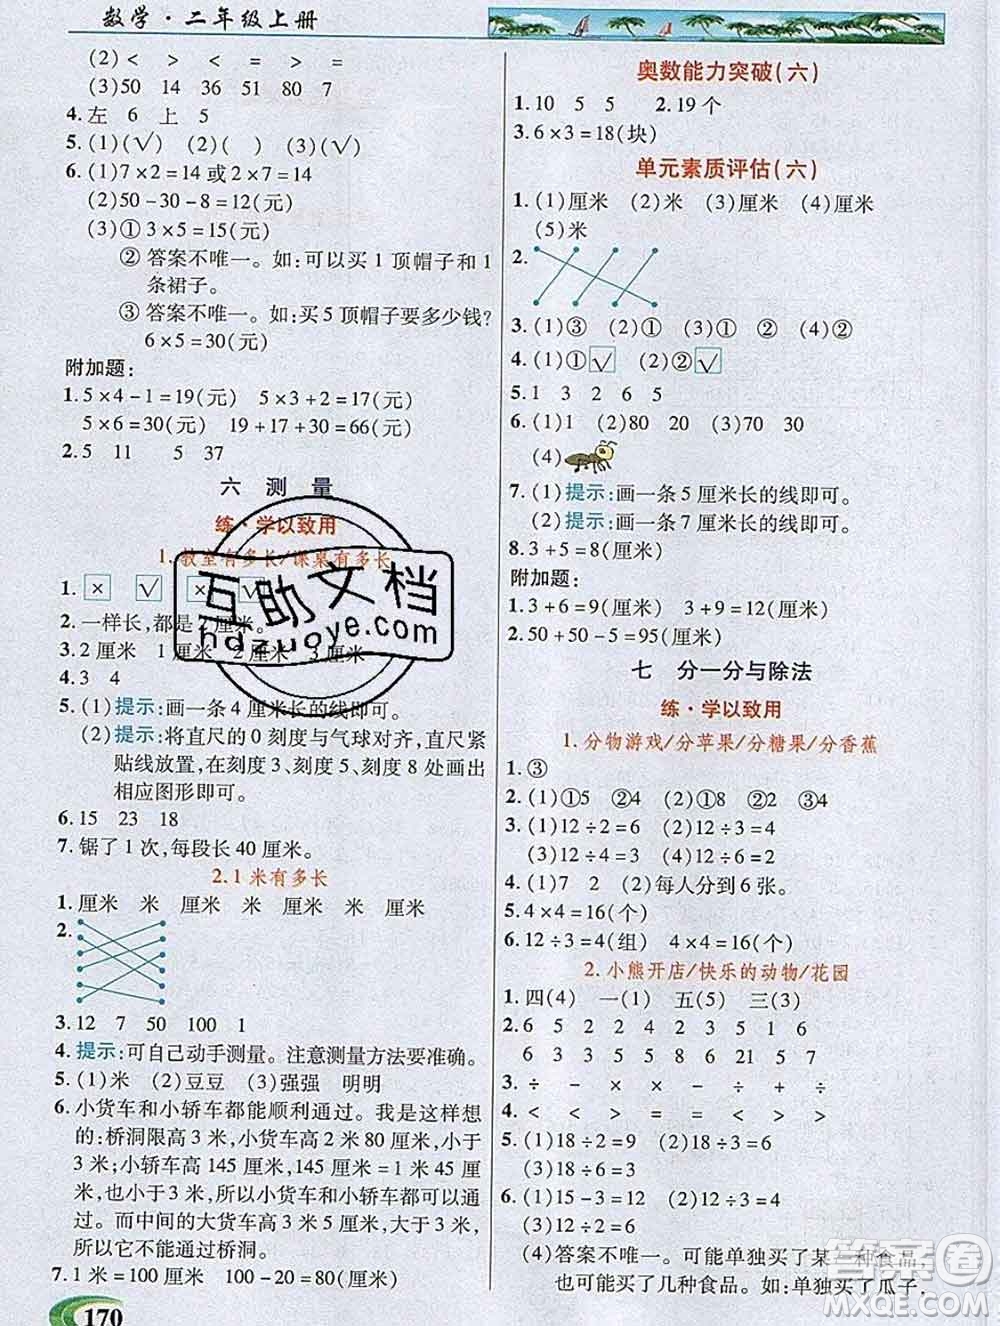 数学·二年级上册
(2)< > < = > =
(3)50 14 36 51 80 7
4.左 6 上 5
5.(1)(√) (2)( ) (3)(√)
6.(1)7×2=14或2×7=14
(2)50-30-8=12(元)
(3)①3×5=15(元)
②答案不唯一。如:可以买1顶帽子和1
条裙子。
③答案不唯一。如:买5顶帽子要多少钱?
6×5=30(元)
附加题:
1.5×4-1=19(元) 5×3+2=17(元)
5×6=30(元) 19+17+30=66(元)
2.5 11 5 37
六 测量
练·学以致用
1.教室有多长/课桌有多长
1.× √ × √
2.一样长,都是2厘米。
3.2厘米 1厘米 2厘米 3厘米
4.3 4
5.(1)提示:画一条4厘米长的线即可。
(2)提示:将直尺的0刻度与气球对齐,直尺紧
贴线放置,在刻度3、刻度5、刻度8处画出
相应图形即可。
6.15 23 18
7.锯了1次,每段长40厘米。
2.1米有多长
1.厘米 米 厘米 厘米 米 厘米
2.
3.12 7 50 100 1
4.提示:可自己动手测量。注意测量方法要准确。
5.(1)米 (2)豆豆 (3)强强 明明
6.小货车和小轿车都能顺利通过。我是这样想
的:桥洞限高3米,小货车高2米80厘米,小于
3米;小轿车高145厘米,145厘米=1米45厘
米,也小于3米,所以小货车和小轿车都可以通
过。而中间的大货车高3米50厘米,大于3米,
所以它不能通过桥洞。
7.1米=100厘米 100-20=80(厘米)
170
奥数能力突破(六)
1.10 5 5 2.19个
3.6×3=18(块)
单元素质评估(六)
1.(1)厘米 (2)米 (3)厘米 (4)厘米
(5)米
2.
3.(1)③ (2)① (3)① ② (4)②
4.(1)①√ (2)②√
5.1 3 2 6 5
6.(1)1 (2)80 20 (3)70 30
(4)
7.(1)提示:画一条5厘米长的线即可。
(2)提示:画一条7厘米长的线即可。
8.3+5=8(厘米)
附加题:
1.3+6=9(厘米) 3+9=12(厘米)
2.50+50-5=95(厘米)
七 分一分与除法
练·学以致用
1.分物游戏/分苹果/分糖果/分香蕉
1.③
2.(1)①5 ②4 (2)①8 ②2 ③4
3.(1)12÷2=6 (2)12÷3=4
(3)12÷4=3 (4)12÷6=2
4.(1)7 2 (2)每人分到6张。
5.4×4=16(个)
6.12÷3=4(组) 4×4=16(个)
2.小熊开店/快乐的动物/花园
1.四(4) 一(1) 五(5) 三(3)
2.6 5 5 4 4 5 2
6 3 5 3 7 3 4
3.÷ - × × ÷ ÷ -
4.< < > = < > >
5.(1)18÷2=9 (2)18÷3=6
(3)18÷6=3
6.(1)15-3=12 (2)12÷3=4
(3)12÷2=6
(4)答案不唯一。可能单独买了某一种食品,
也可能买了几种食品。如:单独买了瓜子,
互助文档
hdzuoye.com
答案圈
MXQE.COM